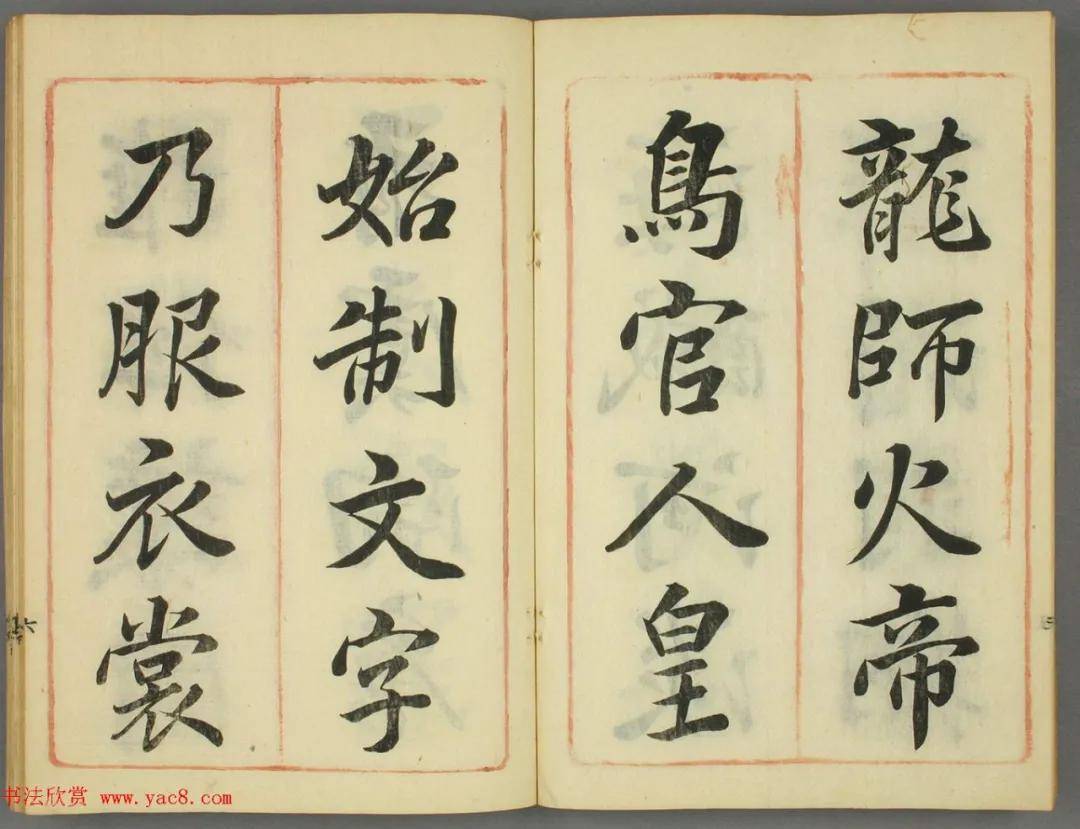 龍師火帝
鳥官人皇
始制文字
乃服衣裳
书法欣赏 www.yac8.com